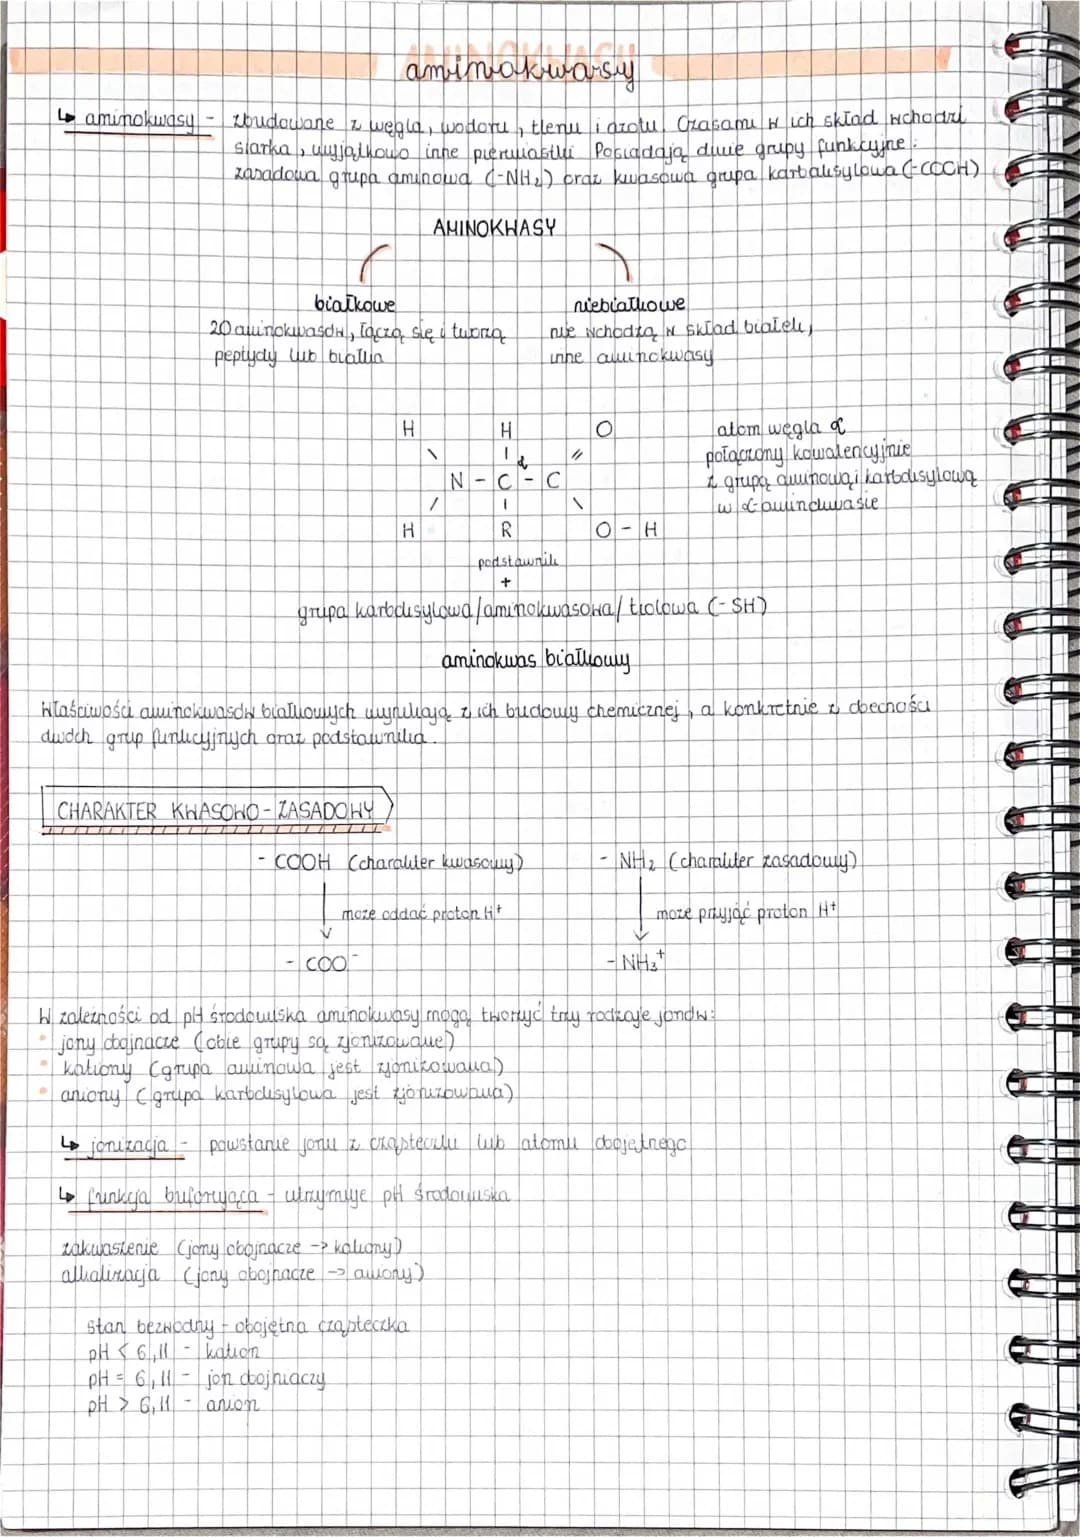 aminokwasy
↳ aminokwasy - zbudowane z węgla, wodoru, tlenu i azotu. Czasami w ich skład wchodzi
siarka, wyjątkowo inne pierwiastki. Posiadają dwie grupy funkcyjne:
zasadowa grupa aminowa (-NH₂) oraz kwasowa grupa karboksylowa (-COOH)
AMINOKWASY
białkowe niebiałkowe
20 aminokwasów, łączą się i tworzą nie wchodzą w skład białek,
peptydy lub białka inne aminokwasy
H H O atom węgla α
α połączony kowalencyjnie
N - C - C z grupą aminową i karboksylową
w α-aminokwasie
H R O - H
podstawnik
+
grupa karboksylowa/aminokwasowa/tiolowa (-SH)
aminokwas białkowy
Właściwości aminokwasów białkowych wynikają z ich budowy chemicznej, a konkretnie z obecności
dwóch grup funkcyjnych oraz podstawnika.
CHARAKTER KWASOWO-ZASADOWY
- COOH (charakter kwasowy) - NH₂ (charakter zasadowy)
może oddać proton H⁺ może przyjąć proton H⁺
- COO⁻ - NH₃⁺
W zależności od pH środowiska aminokwasy mogą tworzyć trzy rodzaje jonów:
• jony obojnacze (obie grupy są zjonizowane)
• kationy (grupa aminowa jest zjonizowana)
• aniony (grupa karboksylowa jest zjonizowana)
↳ jonizacja - powstanie jonu z cząsteczki lub atomu obojętnego
↳ funkcja buforująca - utrzymuje pH środowiska
zakwaszenie (jony obojnacze -> kationy)
alkalizacja (jony obojnacze -> aniony)
stan bezwodny - obojętna cząsteczka
pH < 6,11 - kation
pH = 6,11 - jon obojniaczy
pH > 6,11 - anion